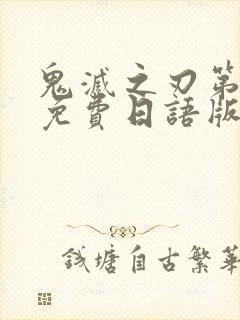 鬼滅之刃第
免費日語版
錢塘自古繁華